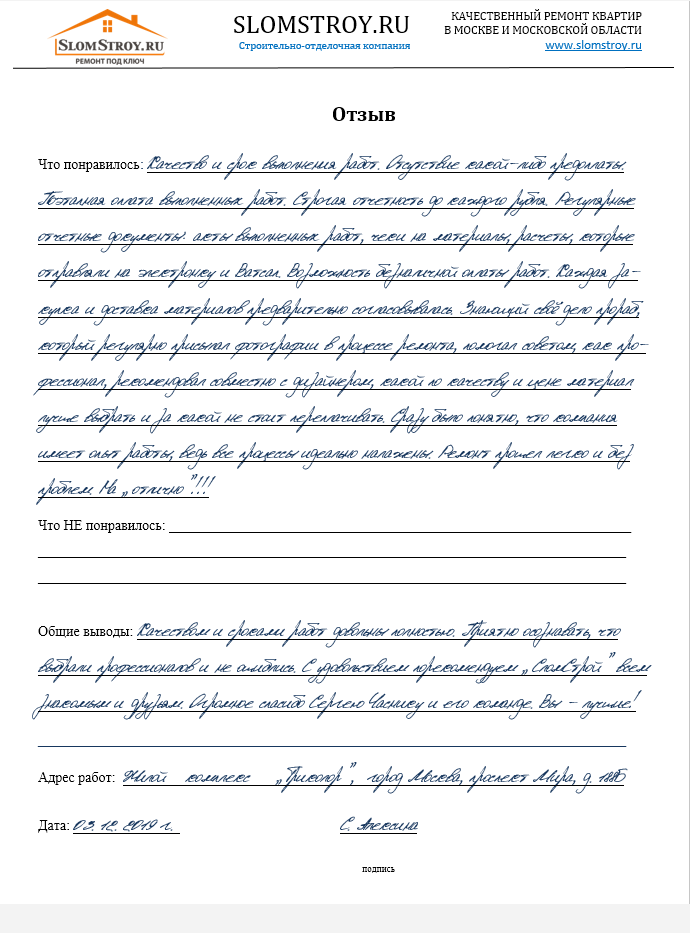 SLOMSTROY.RU
РЕМОНТ ПОД КЛЮЧ
SLOMSTROY.RU
Строительно-отделочная компания
КАЧЕСТВЕННЫЙ РЕМОНТ КВАРТИР
В МОСКВЕ И МОСКОВСКОЙ ОБЛАСТИ
www.slomstroy.ru
Отзыв
Что понравилось: Качество и срок выполнения работ. Отсутствие какой-либо предоплаты.
Поэтапная оплата выполненных работ. Строгая отчетность до каждого рубля. Регулярные
отчетные документы: акты выполненных работ, чеки на материалы, расчеты, которые
отправляли на электронку и Ватсап. Возможность безналичной оплаты работ. Каждая за-
купка и доставка материалов предварительно согласовывалась. Знающий своё дело прораб,
который регулярно присылал фотографии в процессе ремонта, помогал советом, как про-
фессионал, рекомендовал совместно с дизайнером, какой по качеству и цене материал
лучше выбрать и за какой не стоит переплачивать. Сразу было понятно, что компания
имеет опыт работы, ведь все процессы идеально налажены. Ремонт прошел легко и без
проблем. На „отлично”!!!
Что НЕ понравилось:
Общие выводы: Качеством и сроками работ довольны полностью. Приятно осознавать, что
выбрали профессионалов и не ошиблись. С удовольствием порекомендуем „СломСтрой” всем
знакомым и друзьям. Огромное спасибо Сергею Часнису и его команде. Вы – лучшие!
Адрес работ: Жилой комплекс „Триколор”, город Москва, проспект Мира, д. 188Б
Дата: 03.12.2019 г. С. Алексина
подпись